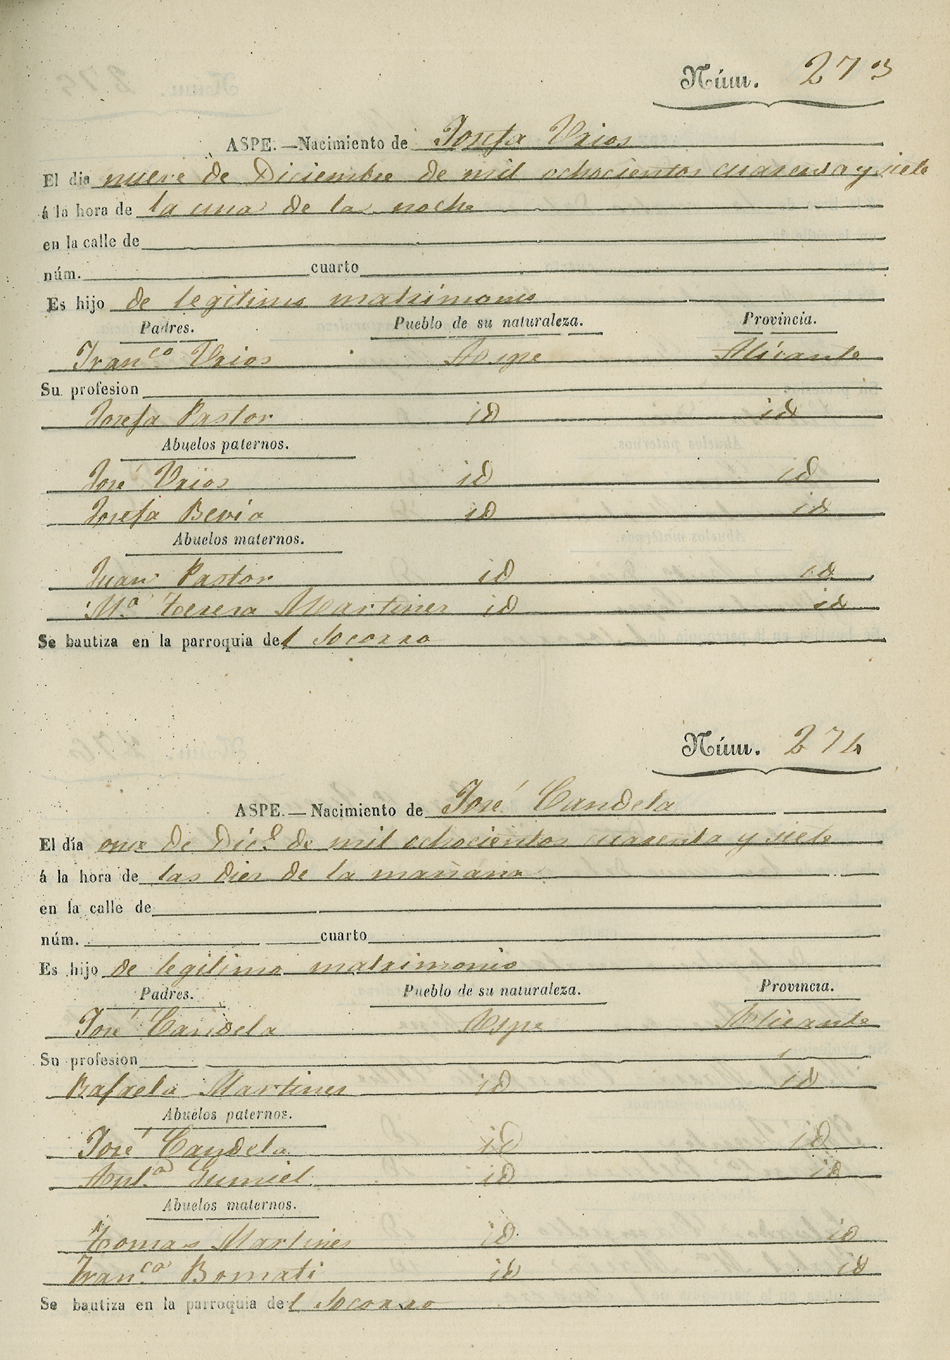 Núm. 273
ASPE.—Nacimiento de Josefa Vrios
El dia nueve de Diciembre de mil ochocientos cuarenta y siete
á la hora de la una de la noche
en la calle de
núm. cuarto
Es hijo de legitimo matrimonio
Padres. Pueblo de su naturaleza. Provincia.
Franco Vrios Aspe Alicante
Su profesion
Josefa Pastor id id
Abuelos paternos.
José Vrios id id
Josefa Bevia id id
Abuelos maternos.
Juan Pastor id id
Ma Teresa Martines id id
Se bautiza en la parroquia del Socorro
Núm. 274
ASPE.—Nacimiento de José Candela
El día onse de Dice de mil ochocientos cuarenta y siete
á la hora de las dies de la mañana
en la calle de
núm. cuarto
Es hijo de legitimo matrimonio
Padres. Pueblo de su naturaleza. Provincia.
José Candela Aspe Alicante
Su profesion
Rafaela Martines id id
Abuelos paternos.
José Candela id id
Anta Jumiel id id
Abuelos maternos.
Tomas Martines id id
Franca Bomati id id
Se bautiza en la parroquia del Socorro